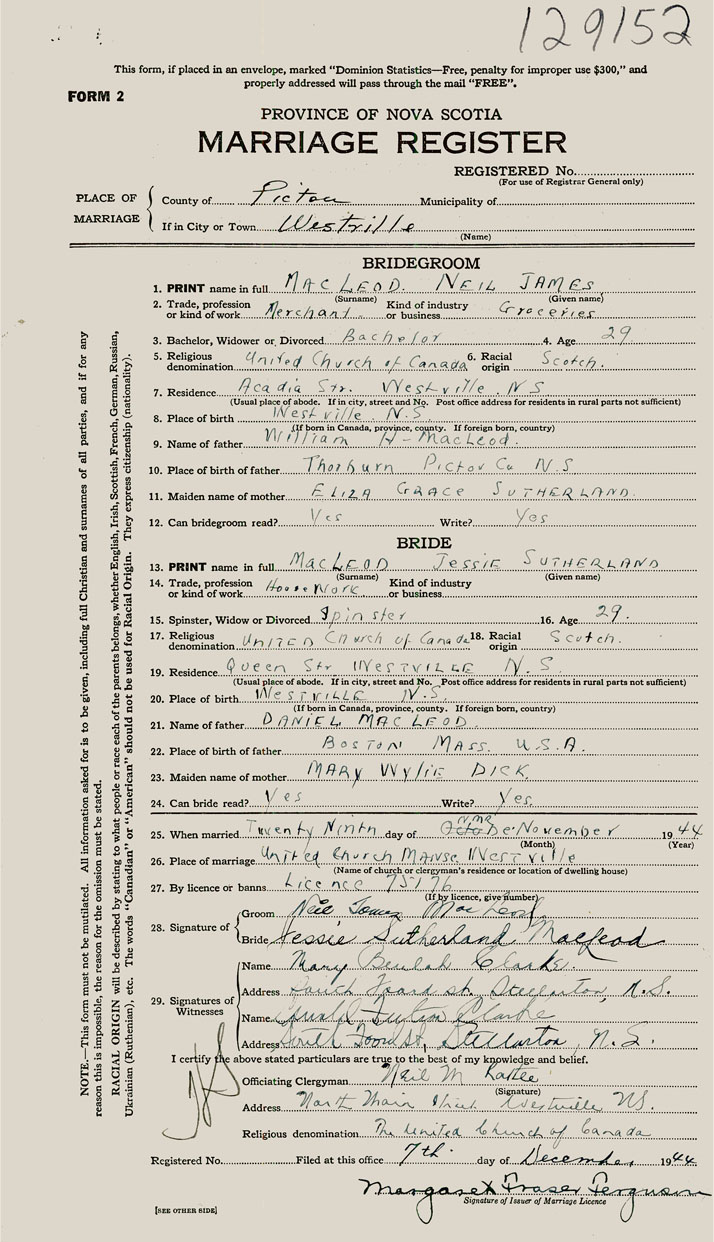 129152
This form, if placed in an envelope, marked "Dominion Statistics—Free, penalty for improper use $300," and
properly addressed will pass through the mail "FREE".
FORM 2
PROVINCE OF NOVA SCOTIA
MARRIAGE REGISTER
REGISTERED No.
(For use of Registrar General only)
PLACE OF MARRIAGE
County of Pictou Municipality of
If in City or Town Westville
(Name)
BRIDEGROOM
1. PRINT name in full MACLEOD. NEIL JAMES
(Surname) (Given name)
2. Trade, profession or kind of work Merchant Kind of industry or business Groceries
3. Bachelor, Widower or Divorced Bachelor 4. Age 29
5. Religious denomination United Church of Canada 6. Racial origin Scotch.
7. Residence Acadia Str. Westville. N S
(Usual place of abode. If in city, street and No. Post office address for residents in rural parts not sufficient)
8. Place of birth Westville. N.S.
(If born in Canada, province, county. If foreign born, country)
9. Name of father William H- MacLeod.
10. Place of birth of father Thorburn Pictou Co N.S.
11. Maiden name of mother ELIZA GRACE SUTHERLAND.
12. Can bridegroom read? Yes Write? Yes
BRIDE
13. PRINT name in full MACLEOD JESSIE SUTHERLAND
(Surname) (Given name)
14. Trade, profession or kind of work House Work Kind of industry or business
15. Spinster, Widow or Divorced Spinster 16. Age 29.
17. Religious denomination UNITED Church of Canada 18. Racial origin Scotch.
19. Residence Queen Str WESTVILLE N.S.
(Usual place of abode. If in city, street and No. Post office address for residents in rural parts not sufficient)
20. Place of birth WESTVILLE N.S.
(If born in Canada, province, county. If foreign born, country)
21. Name of father DANIEL MACLEOD.
22. Place of birth of father BOSTON MASS. U.S.A.
23. Maiden name of mother MARY WYLIE DICK.
24. Can bride read? Yes Write? Yes.
25. When married Twenty Ninth day of November 1944
(Month) (Year)
26. Place of marriage United Church Manse, Westville
(Name of church or clergyman's residence or location of dwelling house)
27. By licence or banns Licence 75176
(If by licence, give number)
28. Signature of
Groom Neil James MacLeod.
Bride Jessie Sutherland Macleod
29. Signatures of Witnesses
Name Mary Beulah Clarke
Address South Foord st. Stellarton, N.S.
Name Clarke
Address South Foord St, Stellarton, N.S.
I certify the above stated particulars are true to the best of my knowledge and belief.
Officiating Clergyman Neil M
(Signature)
Address North Main Street Westville NS.
Religious denomination The United Church of Canada
Registered No. Filed at this office 7th. day of December 1944
Margaret Fraser Ferguson
Signature of Issuer of Marriage Licence
[SEE OTHER SIDE]
NOTE.—This form must not be mutilated. All information asked for is to be given, including full Christian and surnames of all parties, and if for any
reason this is impossible, the reason for the omission must be stated.
RACIAL ORIGIN will be described by stating to what people or race each of the parents belongs, whether English, Irish, Scottish, French, German, Russian,
Ukrainian (Ruthenian), etc. The words "Canadian" or "American" should not be used for Racial Origin. They express citizenship (nationality).